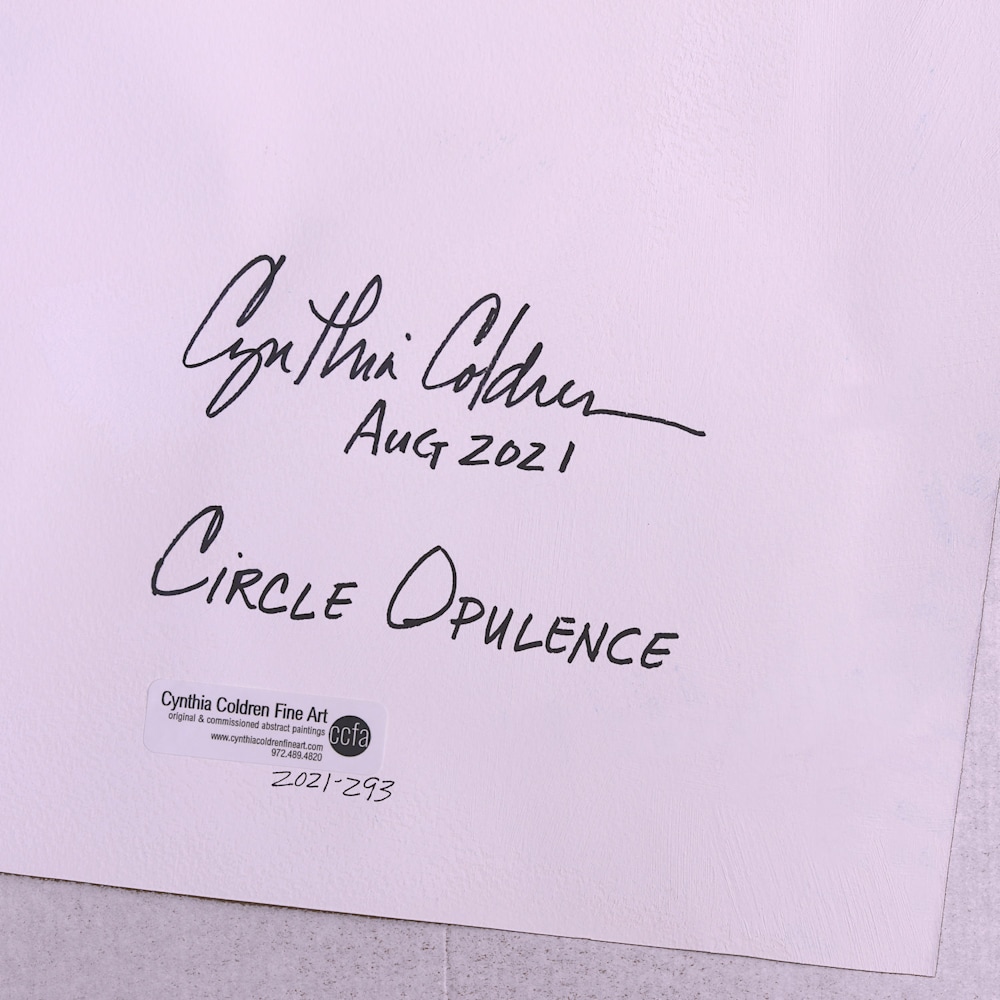 Cynthia Coldren
Aug 2021
CIRCLE OPULENCE
Cynthia Coldren Fine Art
original & commissioned abstract paintings
www.cynthiacoldrenfineart.com
972.489.4820
ccfa
2021-293